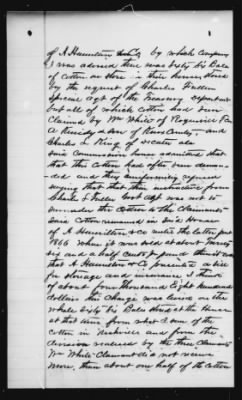 of A Hamilton & Co by which Company
I was advised there was Sixty Six Bales
of Cotton on Store in their house stored
by the request of Charles Fuller
Special agt of the Treasury Department
but all of which cotton had been
Claimed by Wm White of Rogersville
A Kennedy a Son of Knox County and
Charles L King of
Said Commission house admitted that
that this Cotton had often been deman-
ded and they uniformly refused
saying that that their instructions from
Charles Fuller Govt agt was not to
surrender the Cotton to the Claimants
Said cotton remained in Said House
of A Hamilton & co untill the latter part
1866 when it was sold at about Twenty
Six and a half cents per pound
that A Hamilton & Co presented a bill
for storage and insurance I think
of about four Thousand Eight hundred
dollars this Charge was based on the
whole Sixty Six Bales stored at the House
at that time from what I saw of the
cotton in Nashville and from the
division realised by the three Claimants
Wm White Claimant did not receive
more than about one half of the Cotton